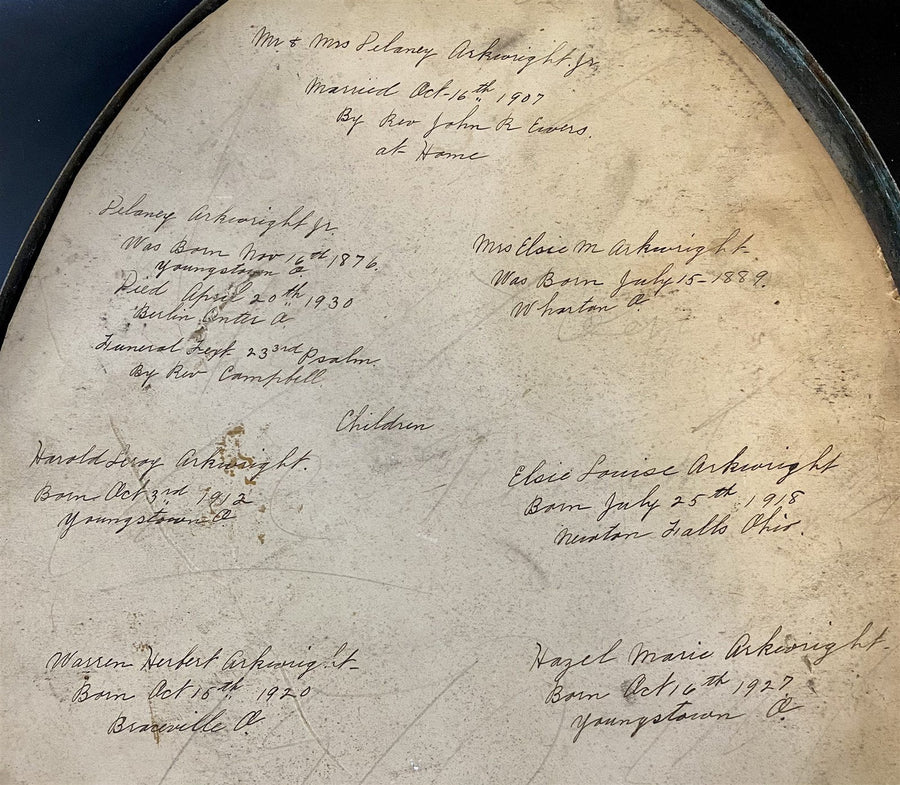 Mr & Mrs Delaney Arkwright Jr,
Married Oct-16th 1907
By Rev John R Ewers.
at Home
Delaney Arkwright Jr.
Was Born Nov 16th 1876.
Youngstown O
Died April 20th 1930
Berlin Center O
Funeral Text 23rd Psalm.
By Rev Campbell
Mrs Elsie M Arkwright-
Was Born July 15-1889.
Wharton O.
Children
Harold Leroy Arkwright.
Born Oct 3rd 1912
Youngstown O
Elsie Louise Arkwright
Born July 25th 1918
Newton Falls Ohio.
Warren Herbert Arkwright-
Born Oct 15th 1920
Braceville O.
Hazel Marie Arkwright-
Born Oct 16th 1927
Youngstown O.